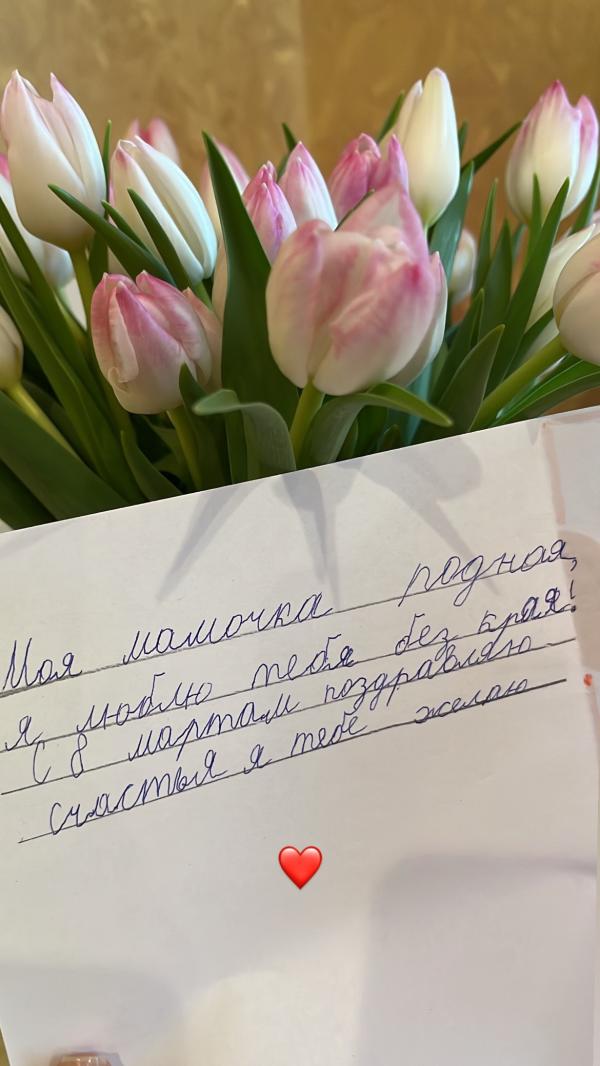 Моя мамочка родная,
я люблю тебя без края!
С 8 мартам поздравляю
счастья я тебе желаю